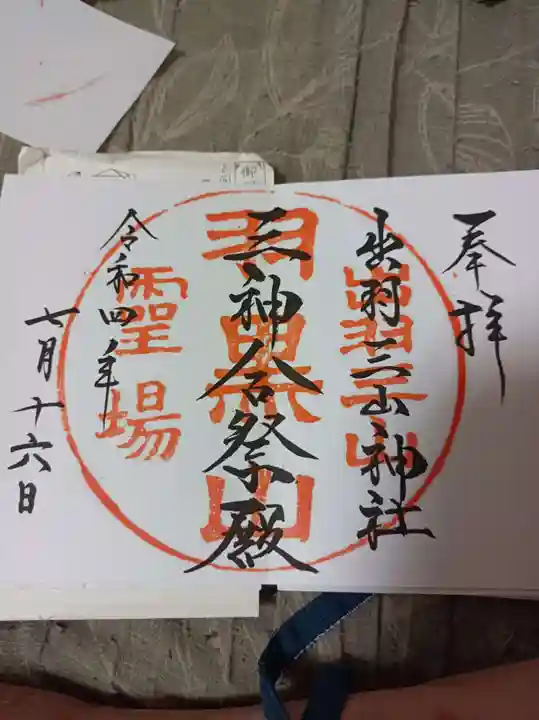 奉拝
出羽三山神社
三神合祭殿
令和四年
七月十六日
出羽三山
羽黒山
霊場
御